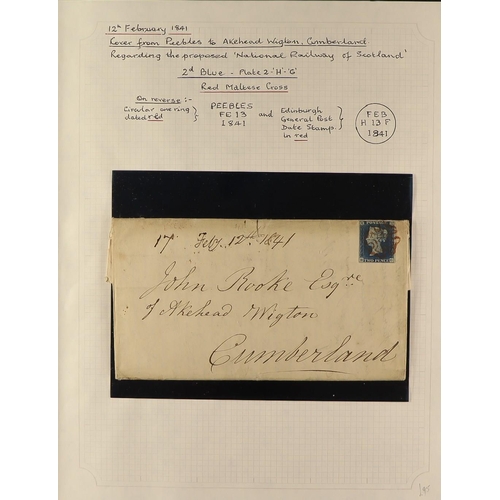 12th February 1841
Cover from Peebles to Akehead Wigton, Cumberland
Regarding the proposed 'National Railway of Scotland'
2d Blue - Plate 2 - 'H'-'G'
Red Maltese Cross
On reverse :-
Circular evening dated red
PEEBLES
FE 13
1841
and
Edinburgh
General Post
Date Stamps
in red
FEB
H 13 F
1841
17 Feby. 12th 1841
John Rooke Esqre
of Akehead Wigton
Cumberland
TWO PENCE